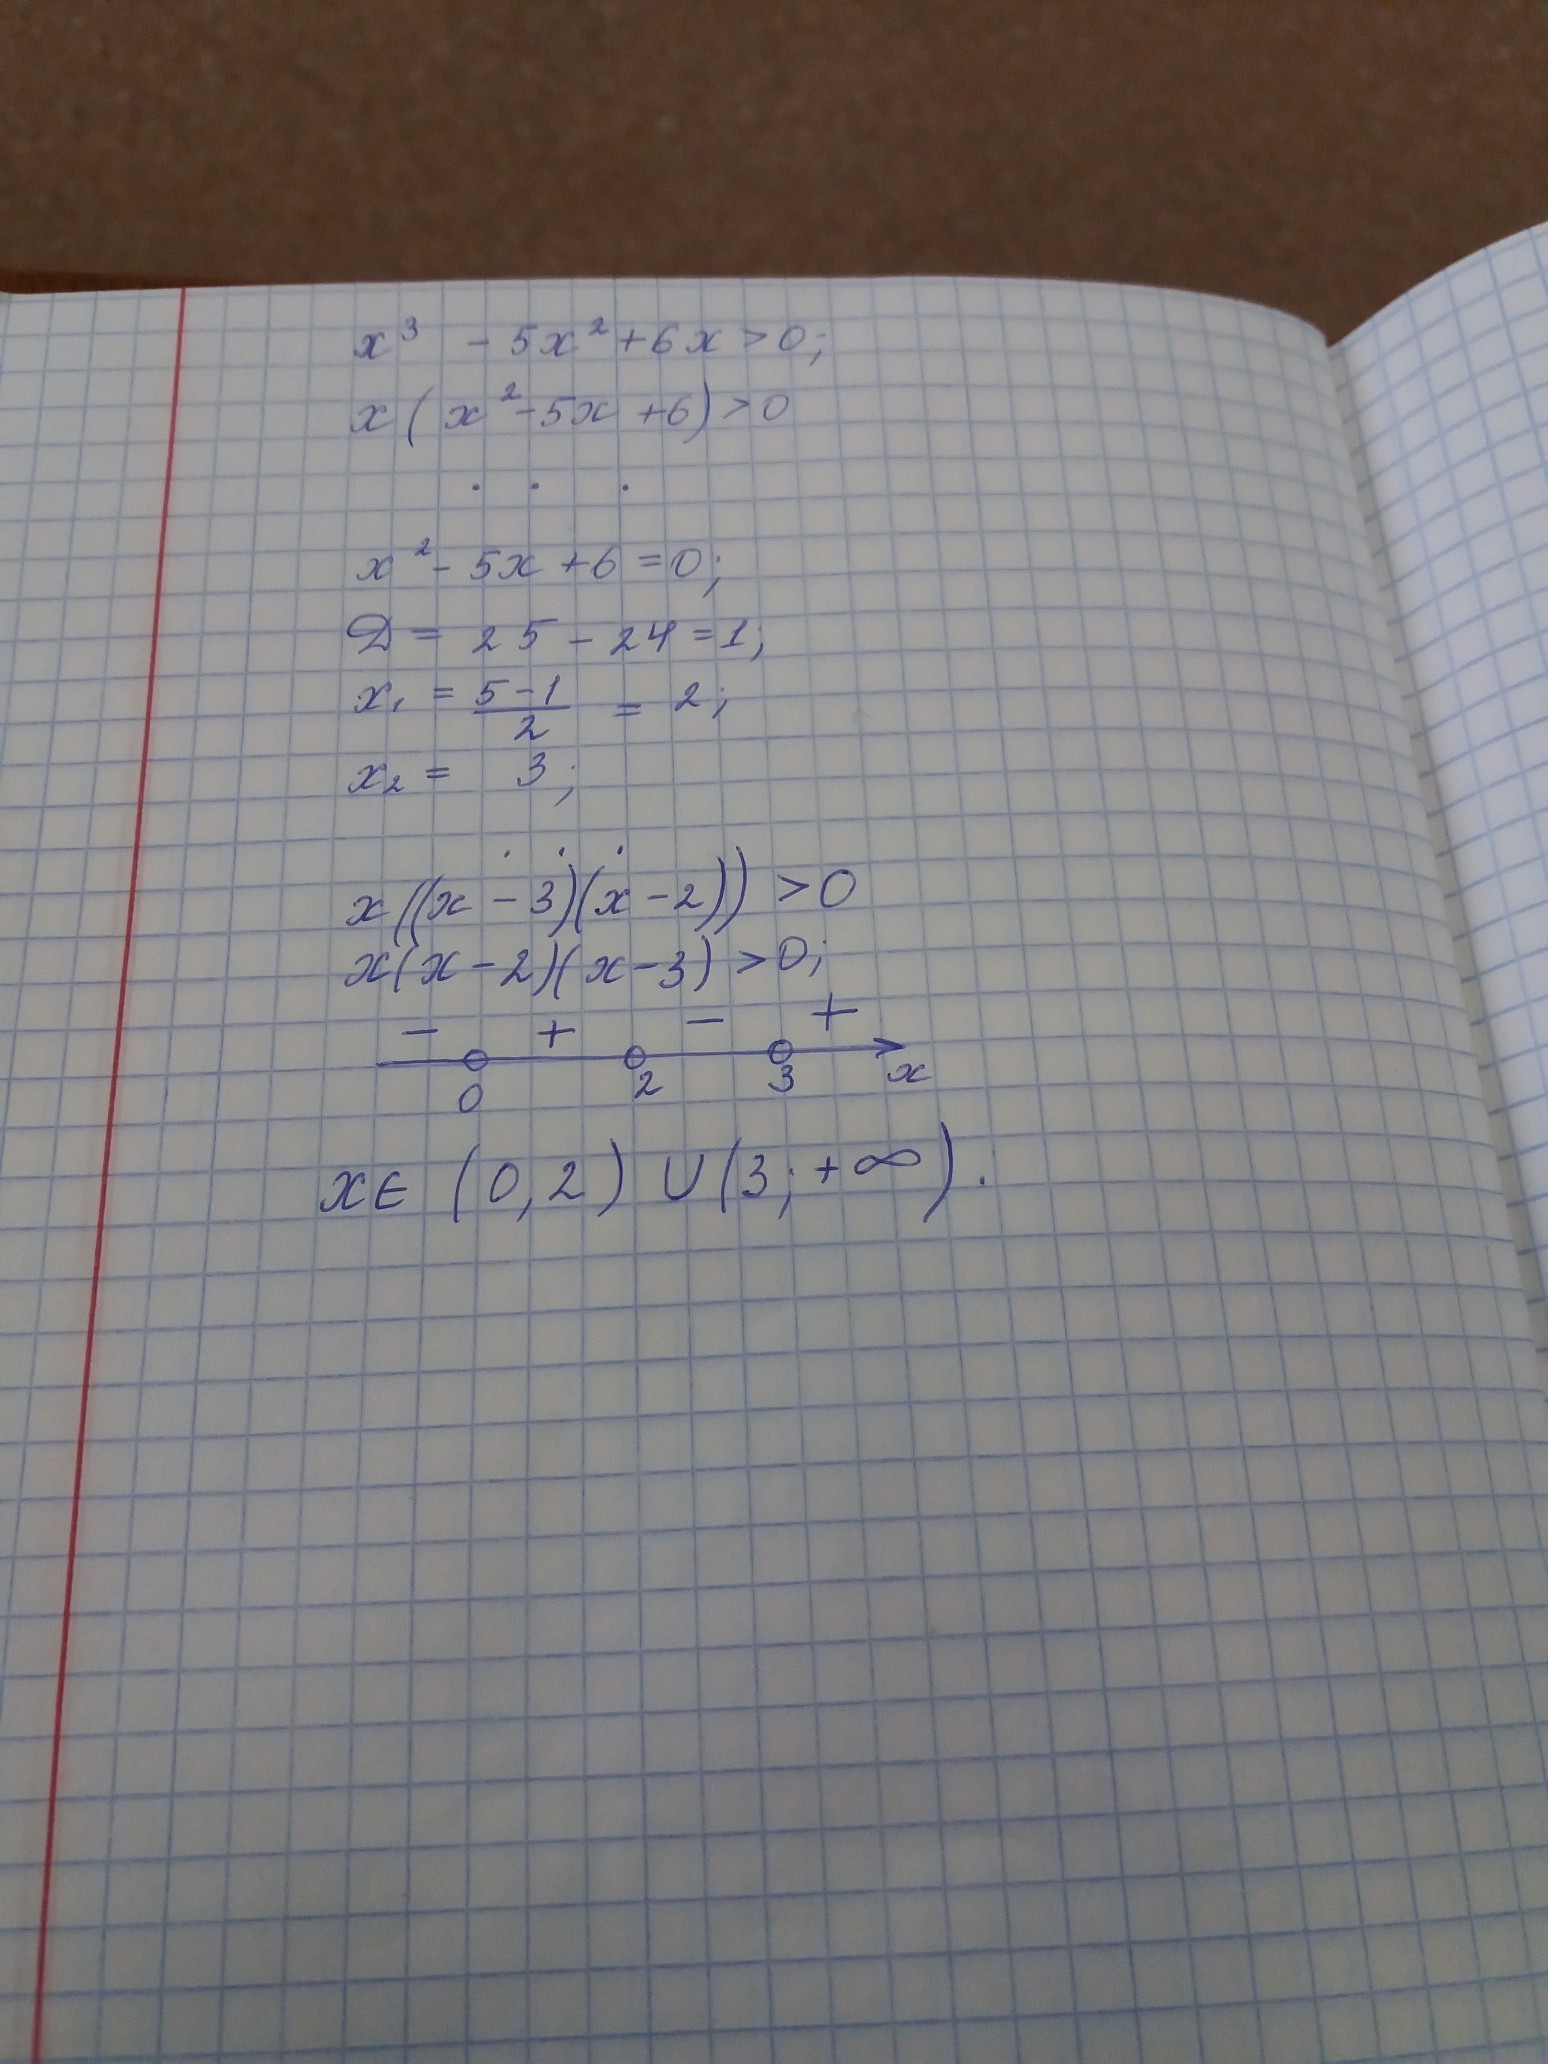 x³ - 5x² + 6x > 0;
x(x² - 5x + 6) > 0
. . .
x² - 5x + 6 = 0;
D = 25 - 24 = 1;
x₁ = (5-1)/2 = 2;
x₂ = 3;
. . .
x((x - 3)(x - 2)) > 0
x(x - 2)(x - 3) > 0;
- + - +
0 2 3 x
x ∈ (0, 2) ∪ (3; +∞).